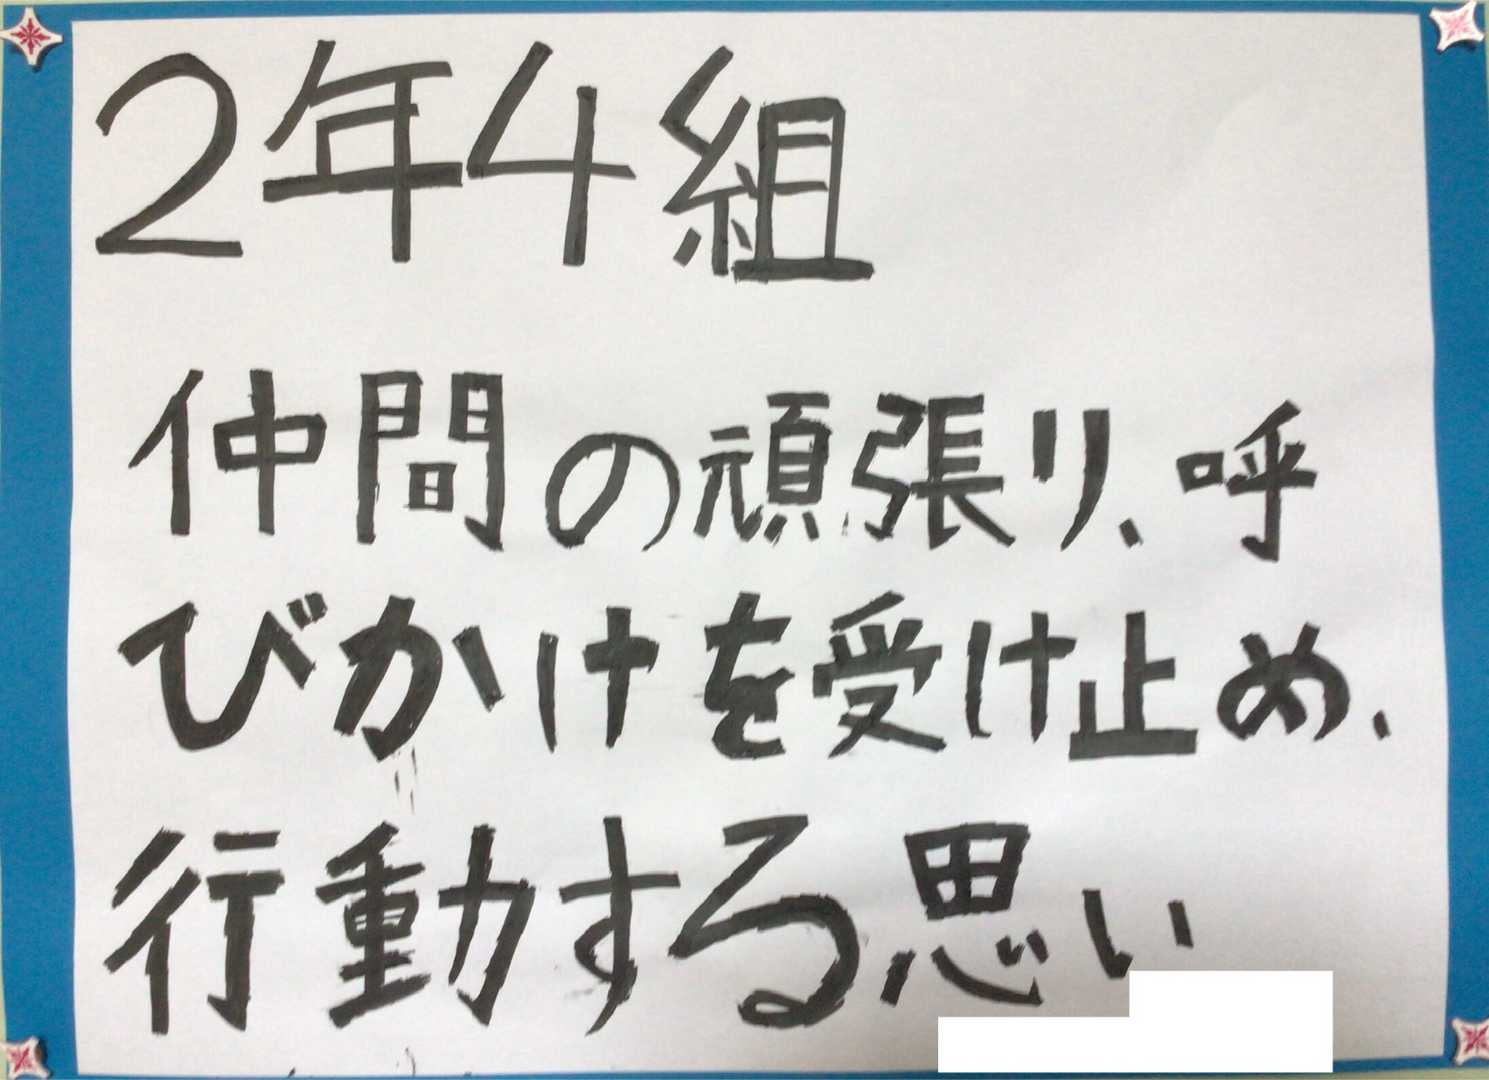 2年4組
仲間の頑張り、呼
びかけを受け止め、
行動する思い